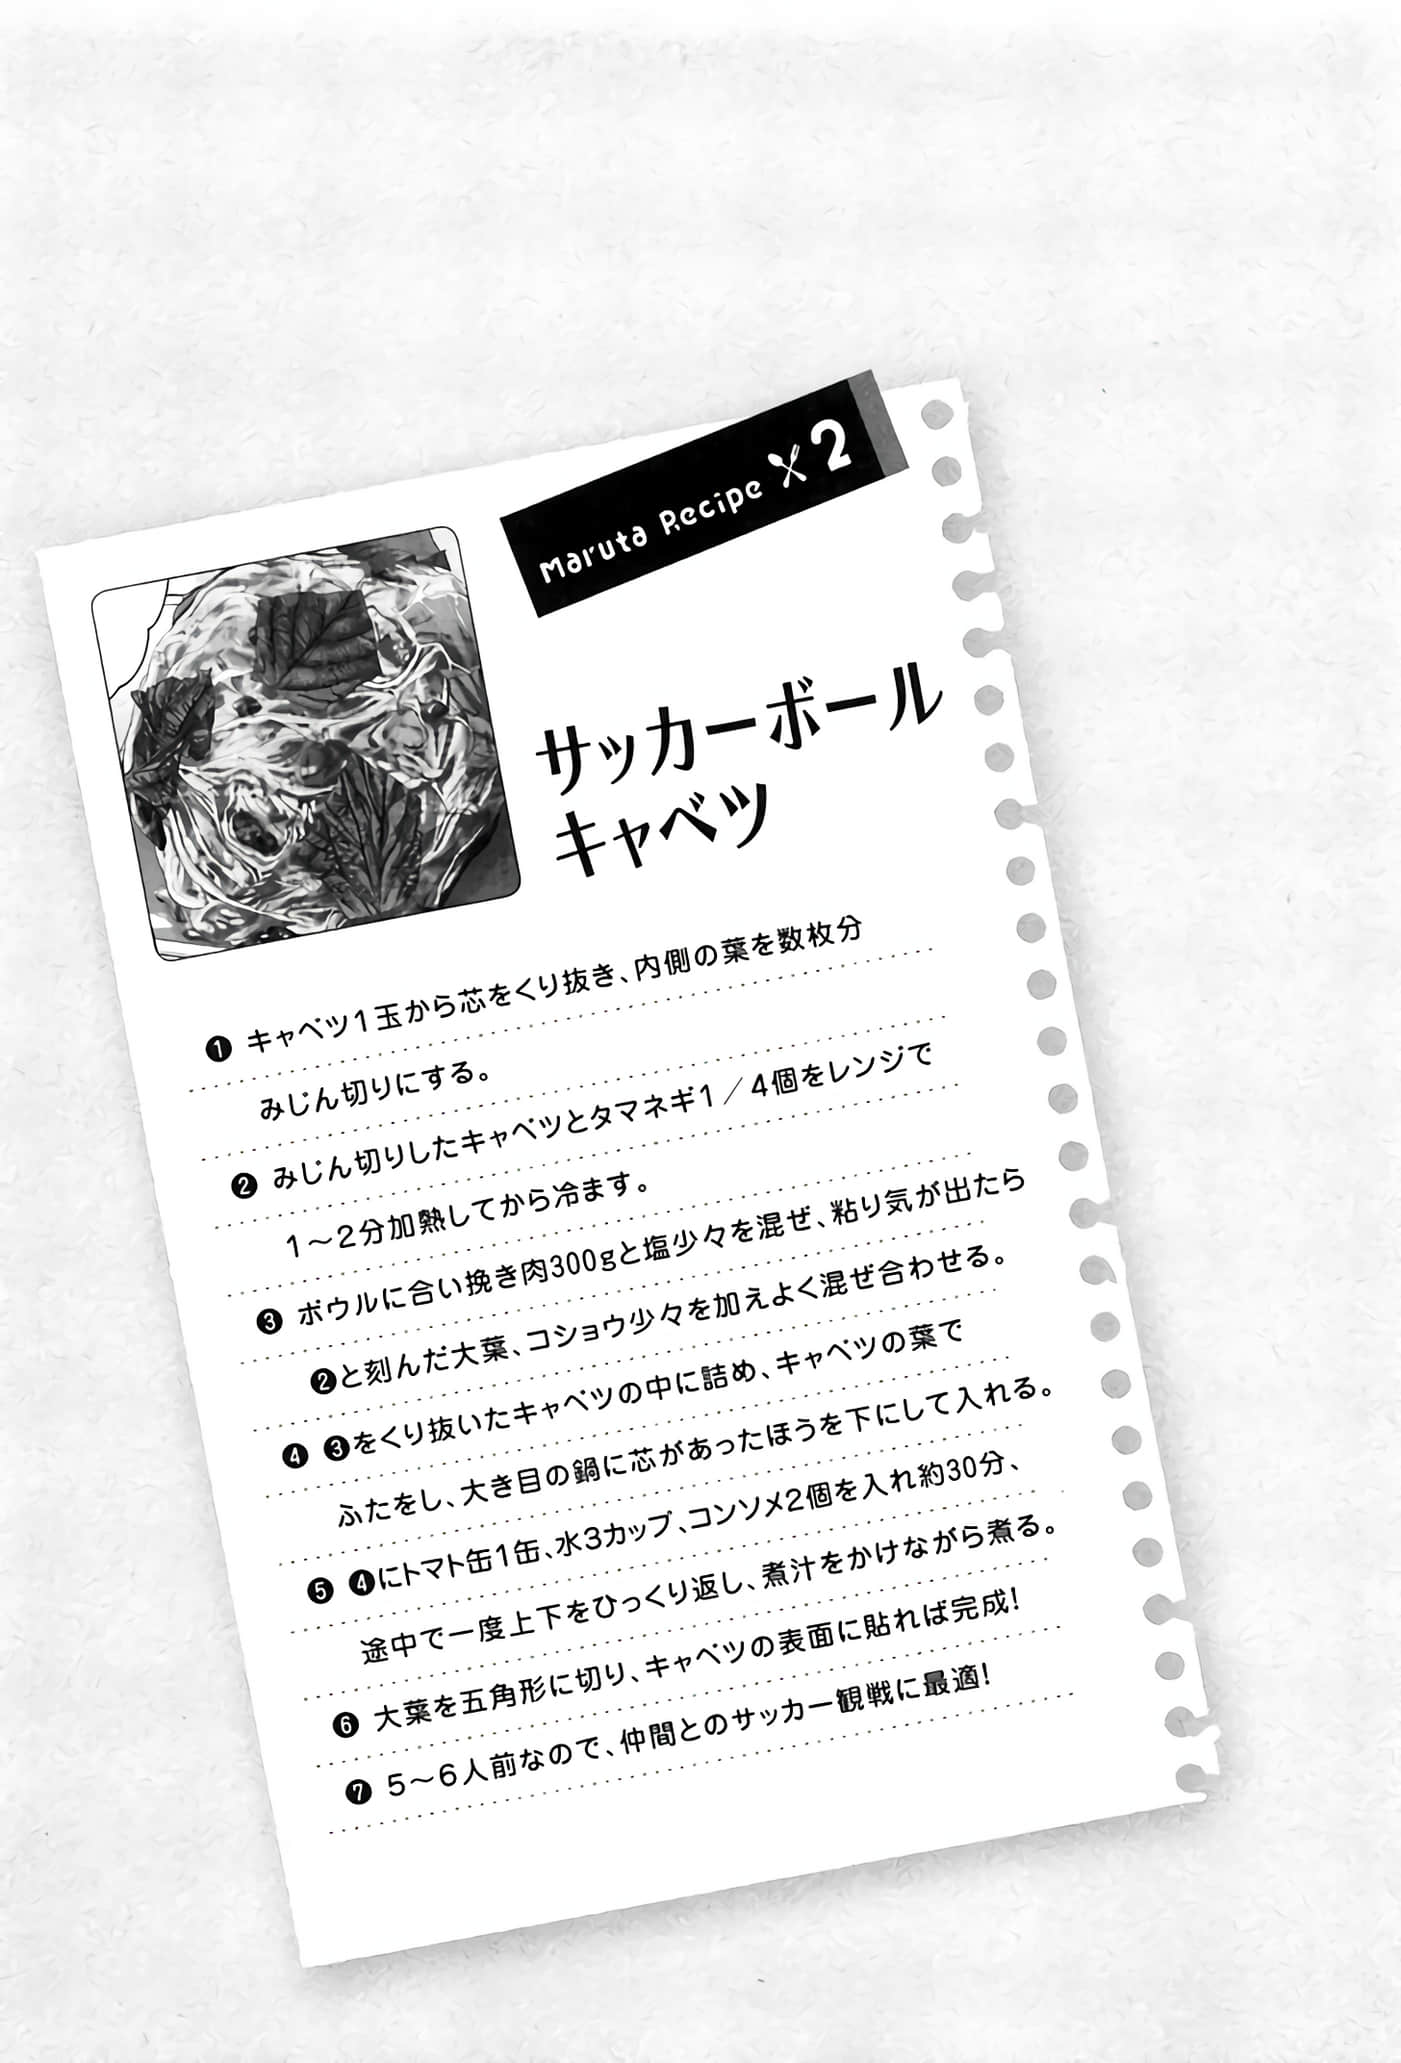 Maruta Recipe 2
サッカーボール
キャベツ
❶ キャベツ1玉から芯をくり抜き、内側の葉を数枚分
みじん切りにする。
❷ みじん切りしたキャベツとタマネギ1／4個をレンジで
1～2分加熱してから冷ます。
❸ ボウルに合い挽き肉300gと塩少々を混ぜ、粘り気が出たら
❷と刻んだ大葉、コショウ少々を加えよく混ぜ合わせる。
❹ ❸をくり抜いたキャベツの中に詰め、キャベツの葉で
ふたをし、大き目の鍋に芯があったほうを下にして入れる。
❺ ❹にトマト缶1缶、水3カップ、コンソメ2個を入れ約30分、
途中で一度上下をひっくり返し、煮汁をかけながら煮る。
❻ 大葉を五角形に切り、キャベツの表面に貼れば完成！
❼ 5～6人前なので、仲間とのサッカー観戦に最適！